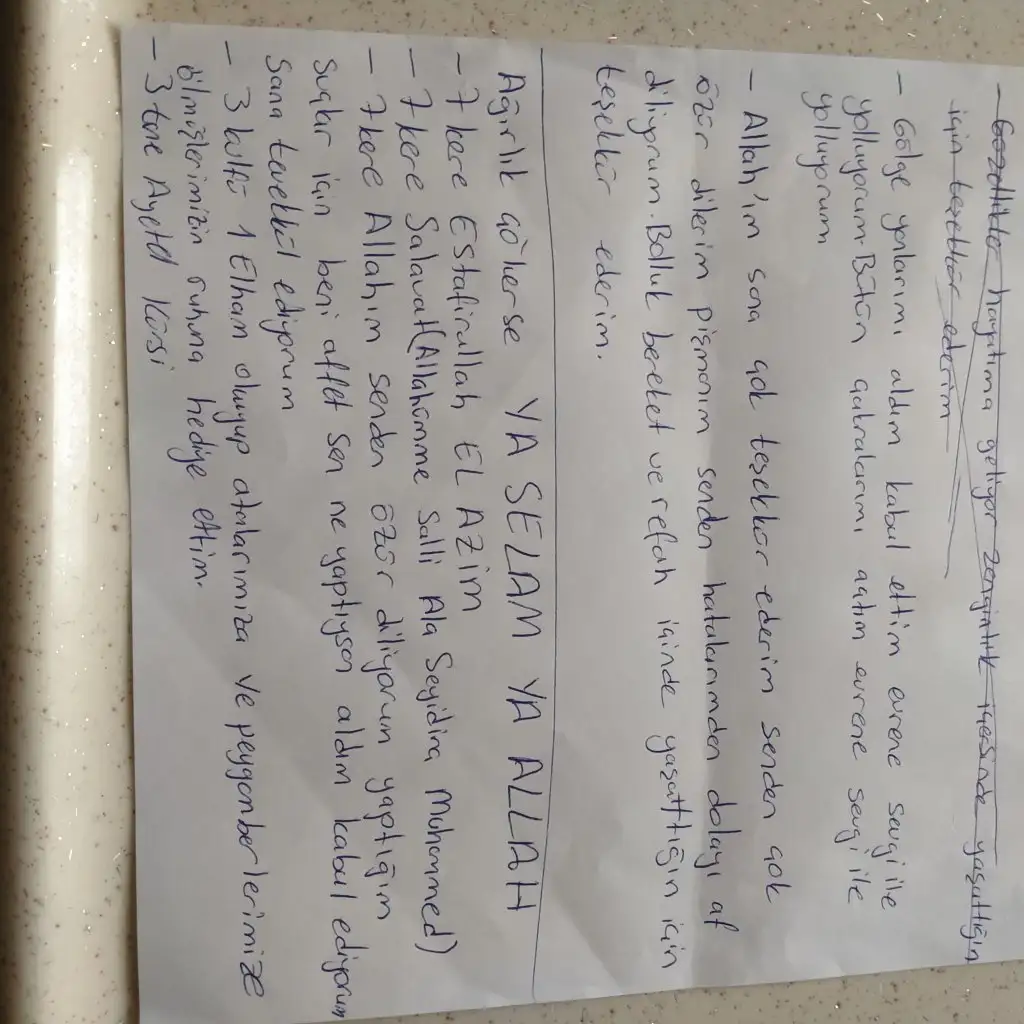 - Güzellikler hayatıma geliyor zenginlik içesinde yaşattığın
için teşekkür ederim
- Gölge yanlarımı aldım kabul ettim evrene sevgi ile
yolluyorum. Bütün çakralarımı açtım evrene sevgi ile
yolluyorum
- Allah'ım sana çok teşekkür ederim senden çok
özür dilerim pişmanım senden hatalarımdan dolayı af
diliyorum. Bolluk bereket ve refah içinde yaşattığın için
teşekkür ederim.
Ağırlık çökerse YA SELAM YA ALLAH
- 7 kere EStafirullah EL AZim
- 7 kere Salavat (Allahümme Salli Ala Seyidina Muhammed)
- 7 kere Allahım senden özür diliyorum yaptığım
suçlar için beni affet sen ne yaptıysan aldım kabul ediyorum
Sana tevekkül ediyorum
- 3 kulfü 1 Elham okuyup atalarımıza ve peygamberlerimize
ölmüşlerimizin ruhuna hediye ettim.
- 3 tane Ayetel Kürsi